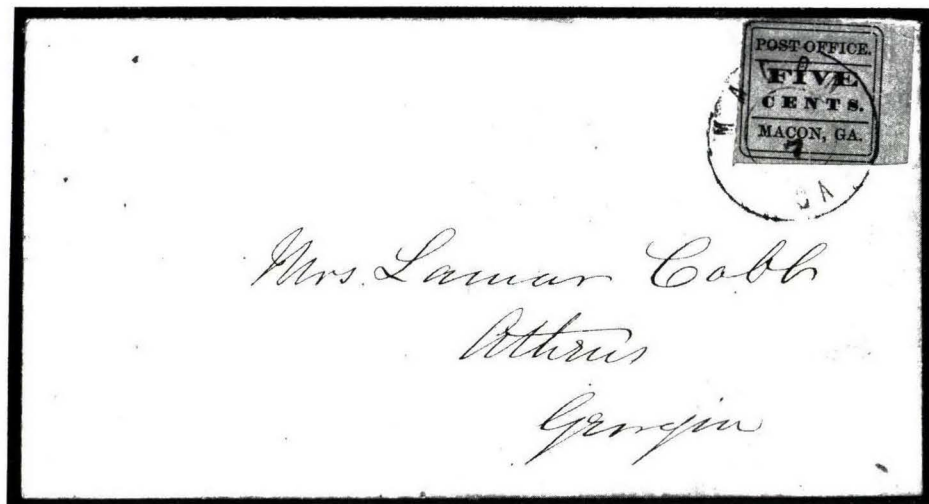 POST OFFICE.
FIVE
CENTS.
MACON, GA.
GA
Mrs. Lamar Cobb
Athens
Georgia